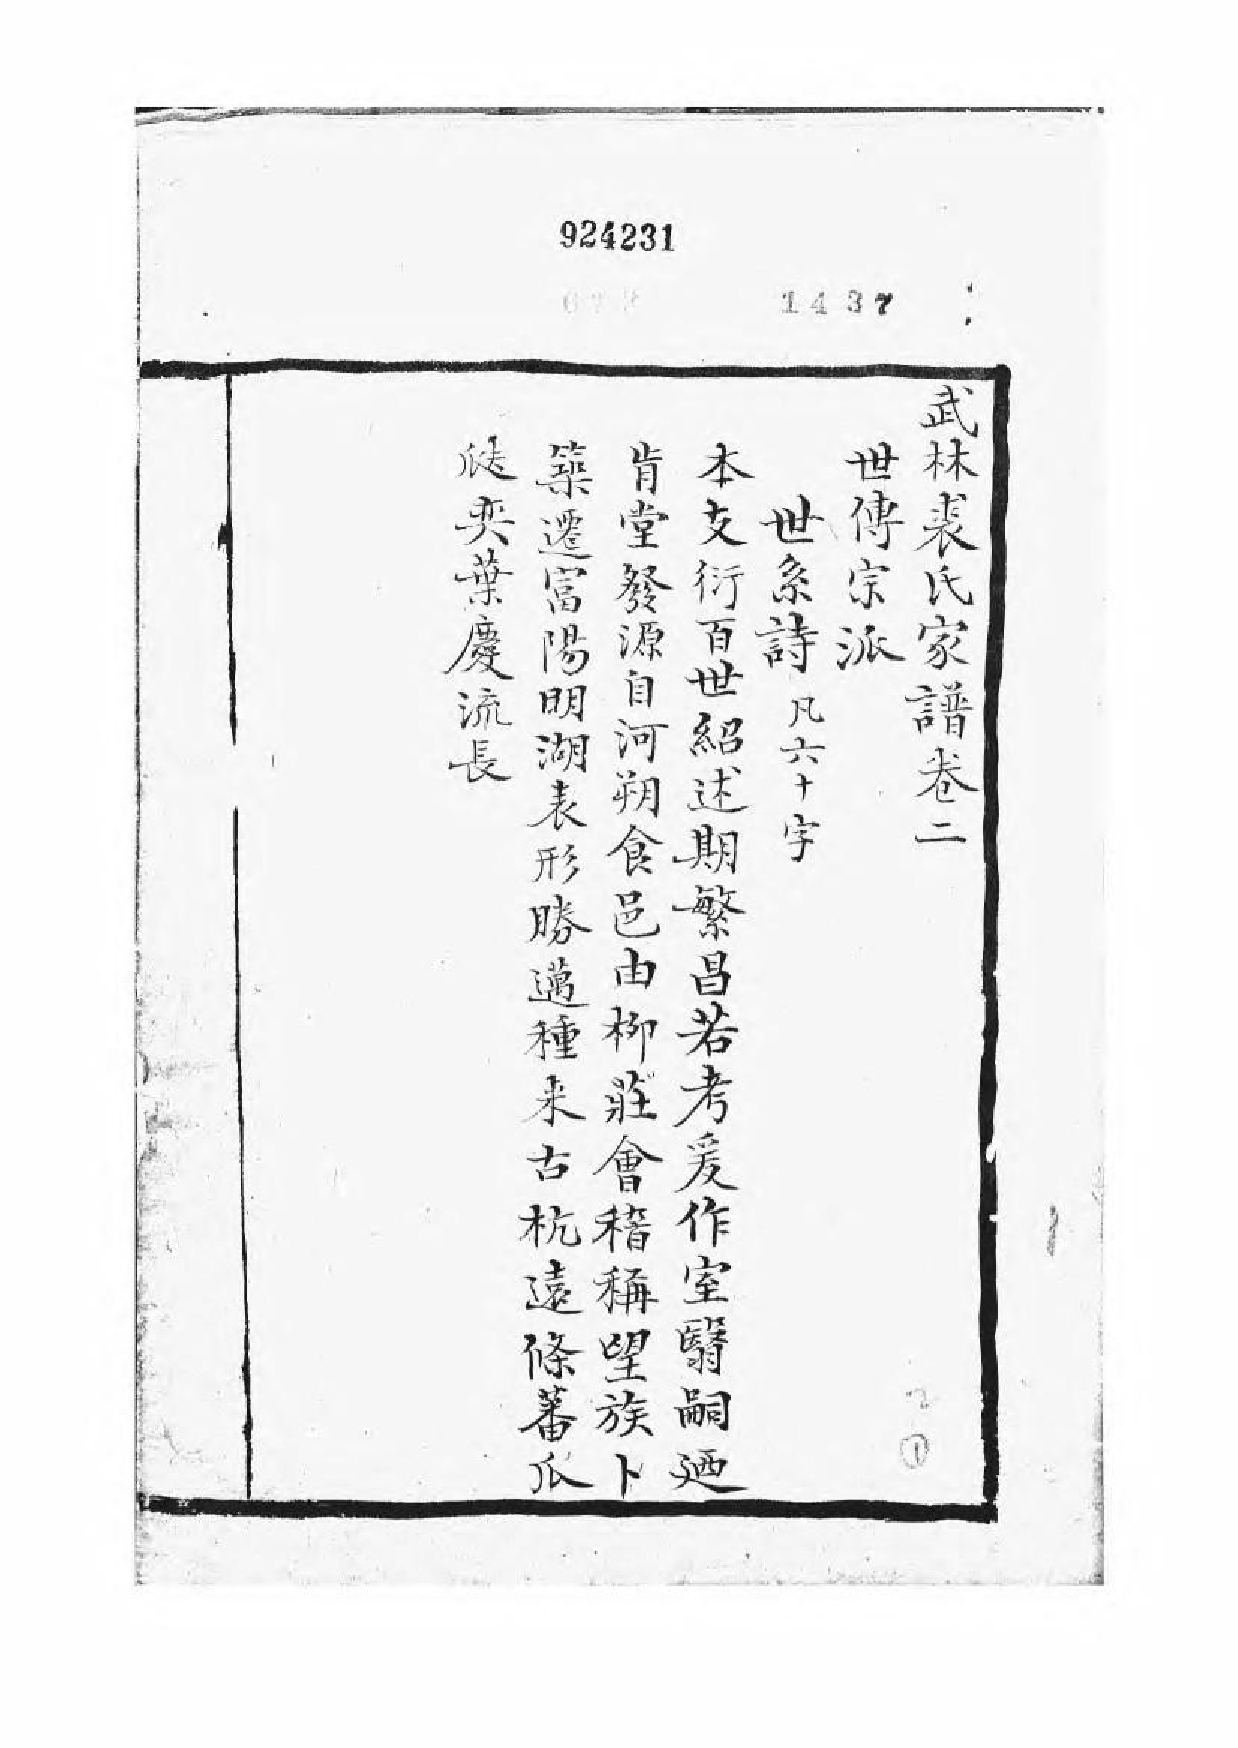 924231
1437
武林裘氏家譜卷二
世傳宗派
世系詩凡六十字
本支衍百世紹述期繁昌若考爰作室翳嗣廼
肯堂發源自河朔食邑由柳莊會稽稱望族卜
築遷富陽明湖表形勝邁種来古杭遠條蕃瓜
瓞奕葉慶流長
2
①